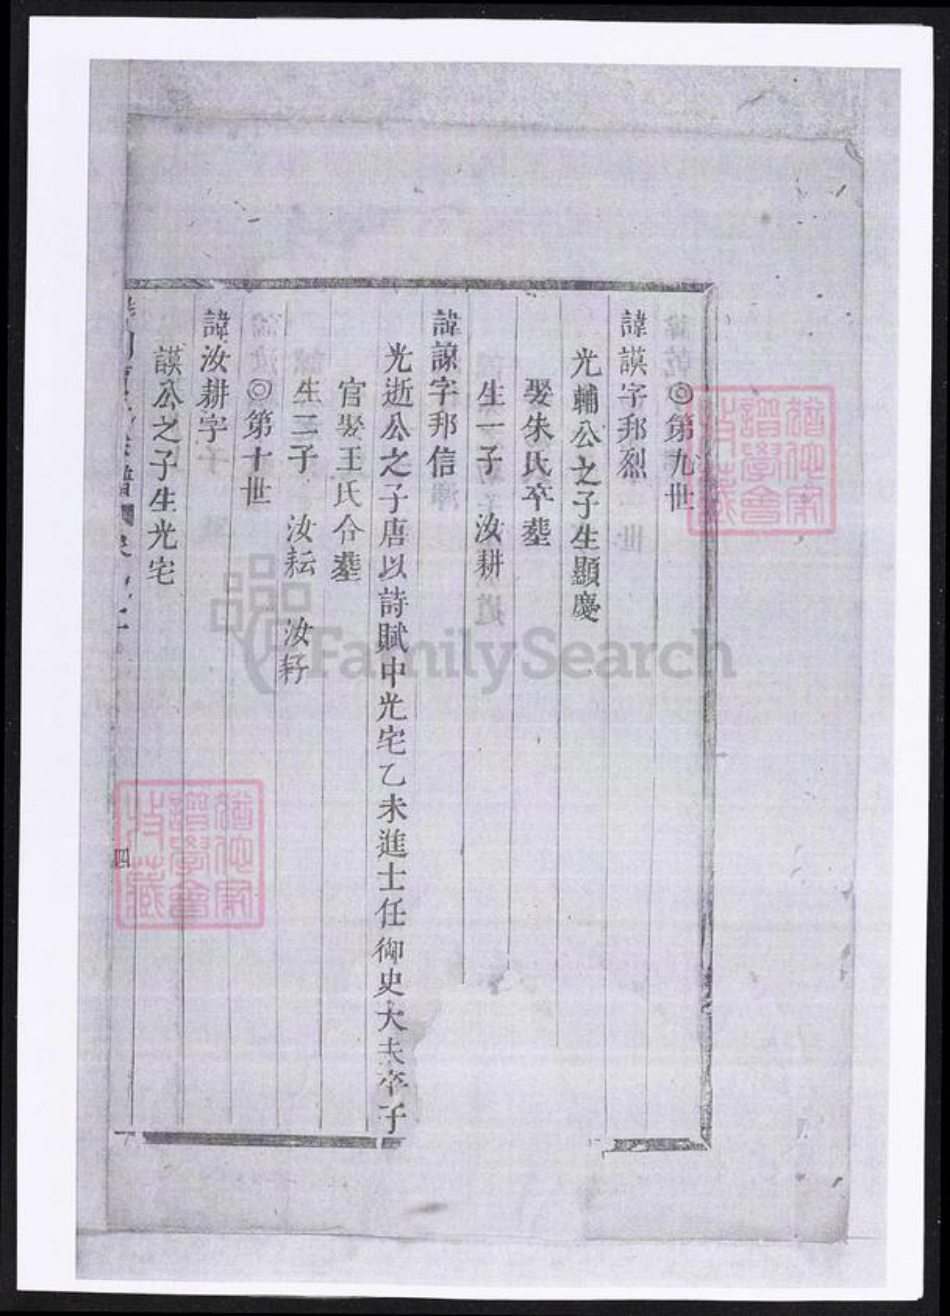 ◎第九世
諱謨字邦烈
光輔公之子生顯慶
娶朱氏卒塟
生一子 汝耕
諱諒字邦信
光逝公之子唐以詩賦中光宅乙未進士任御史大夫卒于
官娶王氏合塟
生二子 汝耘 汝耔
◎第十世
諱汝耕字
謨公之子生光宅
四
FamilySearch